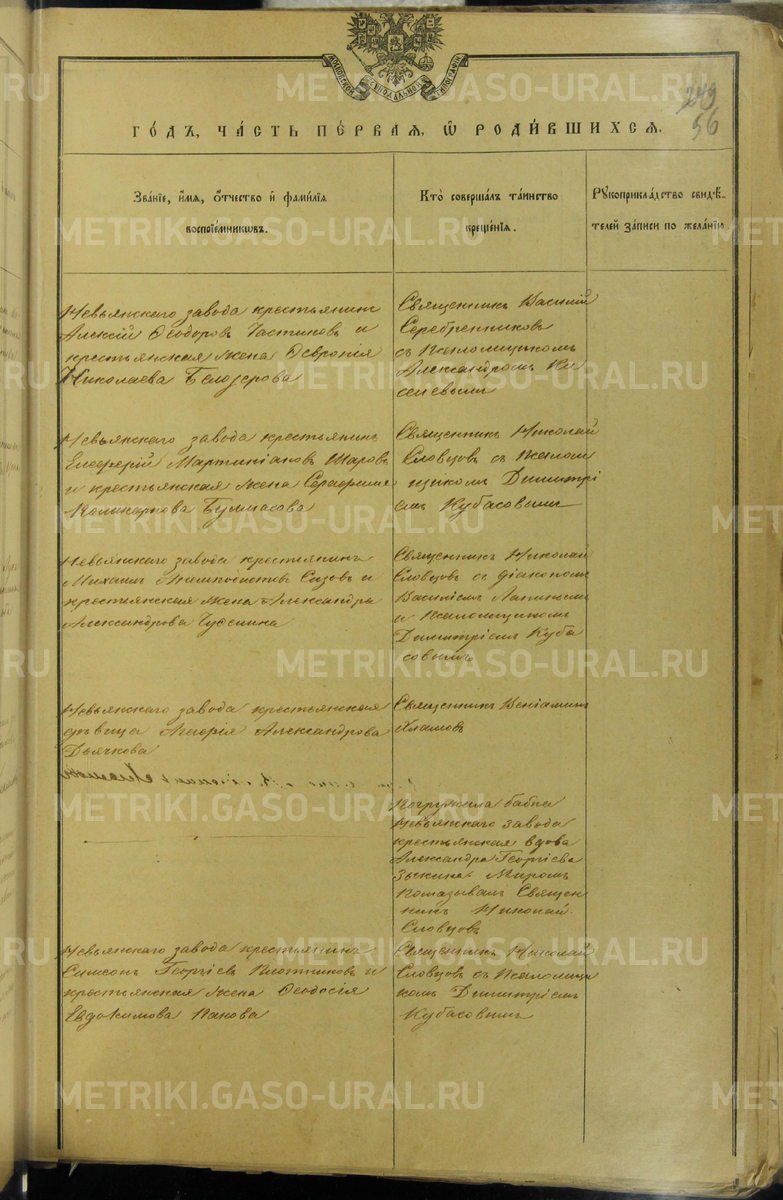 МОСКОВСКОЙ СѴНОДАЛЬНОЙ ТИПОГРАФІИ
249
56
ГО́ДЪ, ЧА́СТЬ ПЕ́РВАЯ, Ѽ РОДИ́ВШИХСЯ.
Зва́нїе, и҆́мя, ѻ҆́тчество и҆ фами́лїя
воспрїе́мникѡвъ.
Кто̀ соверша́лъ та́инство
креще́нїя.
Рꙋкоприкла́дство свидѣ́-
телей за́писи по жела́нїю.
Невьянскаго завода крестьянинъ
Алексій Ѳеодоровъ и
крестьянская жена Ѳеврония
Николаева Белозерова
Священникъ Василій
Серебренниковъ
съ Псаломщикомъ
Александромъ Ки
селевымъ
Невьянскаго завода крестьянинъ
Елеѳерій Мартиніановъ Шаровъ
и крестьянская жена Серафима
Поликарпова
Священникъ Николай
Словцовъ съ Псалом
щикомъ Димитрі
емъ Кубасовымъ
Невьянскаго завода крестьянинъ
Михаилъ Сизовъ и
крестьянская жена Александра
Александрова
Священникъ Николай
Словцовъ съ діакономъ
Василіемъ
и Псаломщикомъ
Димитріемъ Куба
совымъ
Невьянскаго завода крестьянская
дѣвица Александрова
Дьячкова
Священникъ Веніаминъ
Хламовъ
Погружала бабка
Невьянскаго завода
крестьянская вдова
Александра Георгіева
Зыкина. Мѵромъ
помазывалъ Священ
никъ Николай
Словцовъ
Невьянскаго завода крестьянинъ
Симеонъ Георгіевъ Плотниковъ и
крестьянская жена Ѳеодосія
Евдокимова Панова
Священникъ Николай
Словцовъ съ Псаломщи
комъ Димитріемъ
Кубасовымъ
METRIKI.GASO-URAL.RU